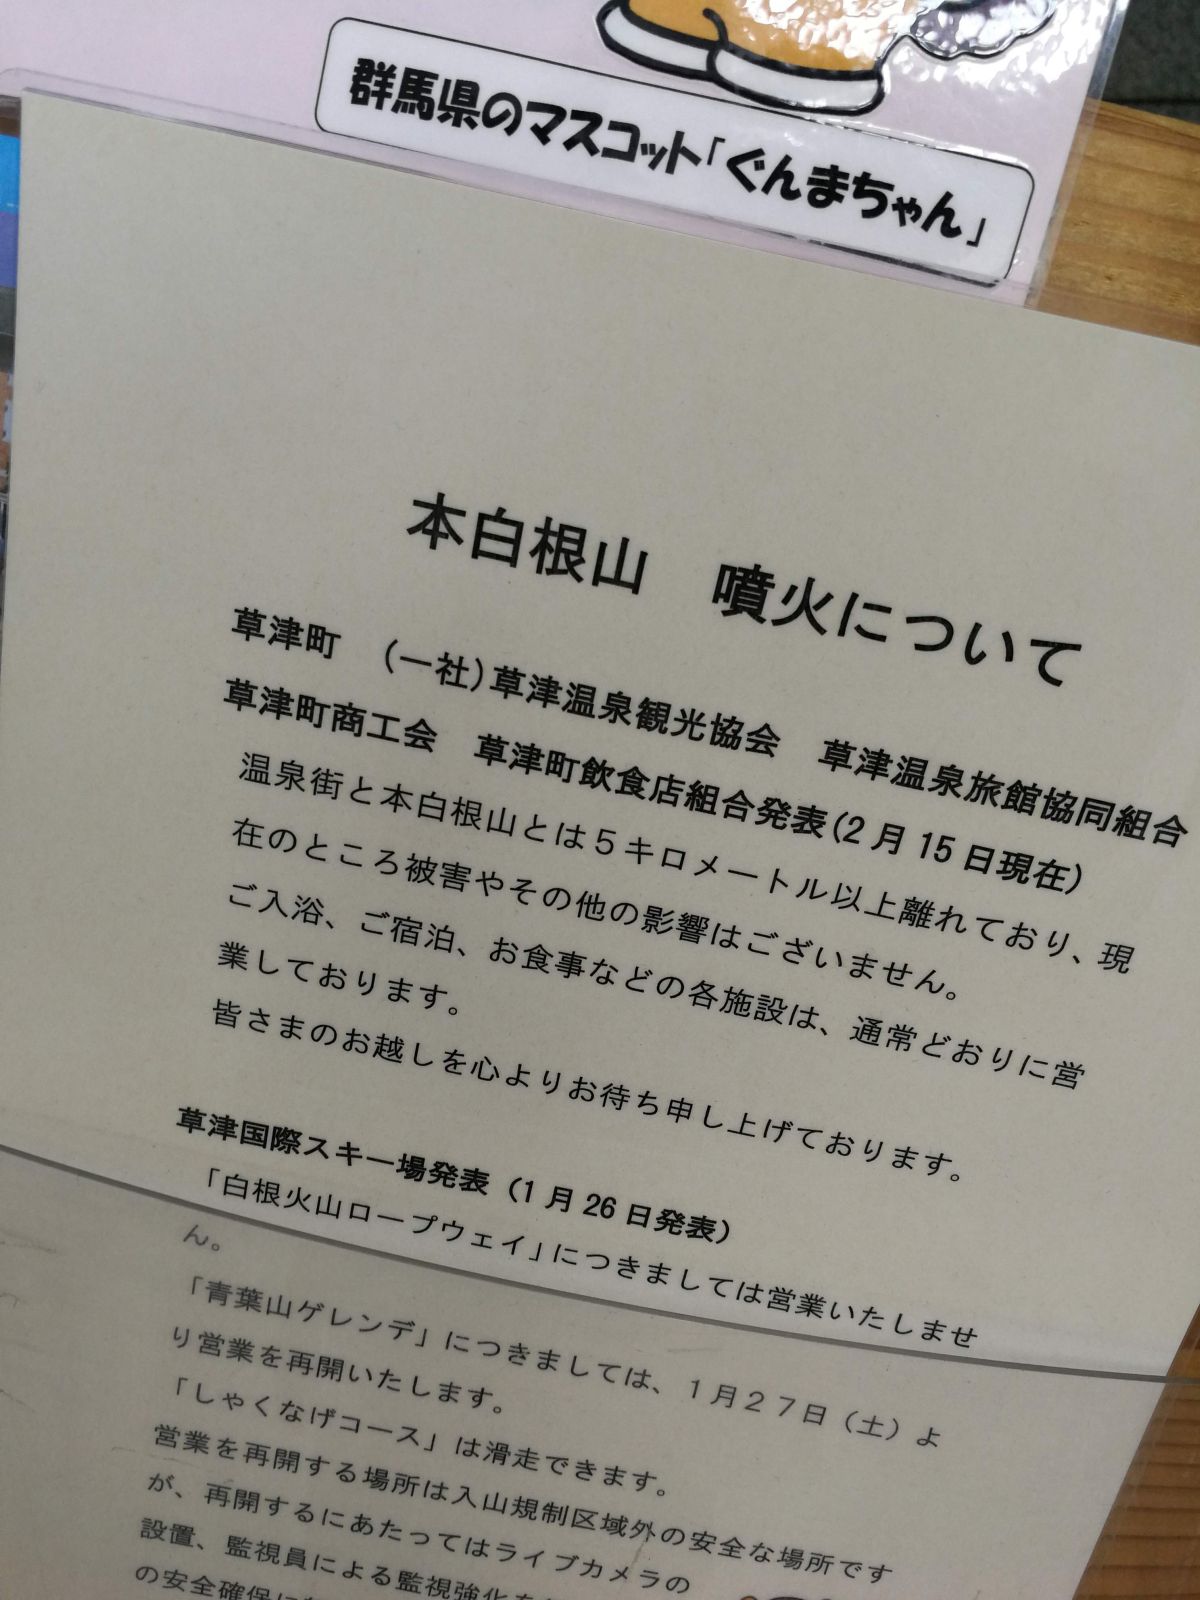 群馬県のマスコット「ぐんまちゃん」
本白根山　噴火について
草津町　(一社)草津温泉観光協会　草津温泉旅館協同組合
草津町商工会　草津町飲食店組合発表(2月15日現在)
温泉街と本白根山とは５キロメートル以上離れており、現
在のところ被害やその他の影響はございません。
ご入浴、ご宿泊、お食事などの各施設は、通常どおりに営
業しております。
皆さまのお越しを心よりお待ち申し上げております。
草津国際スキー場発表（1月26日発表）
「白根火山ロープウェイ」につきましては営業いたしませ
ん。
「青葉山ゲレンデ」につきましては、１月２７日（土）よ
り営業を再開いたします。
「しゃくなげコース」は滑走できます。
営業を再開する場所は入山規制区域外の安全な場所です
が、再開するにあたってはライブカメラの
設置、監視員による監視強化を
の安全確保に